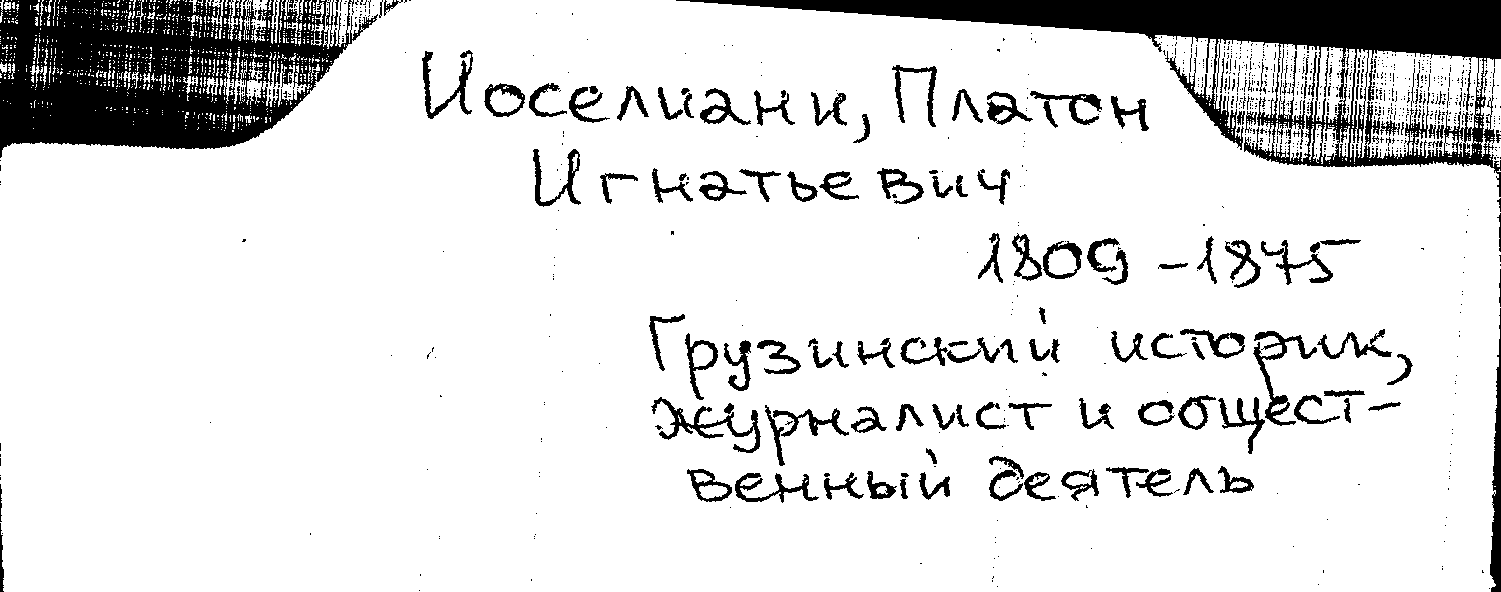 Иоселиани, Платон
Игнатьевич
1809 - 1875
Грузинский историк,
журналист и общест-
венный деятель